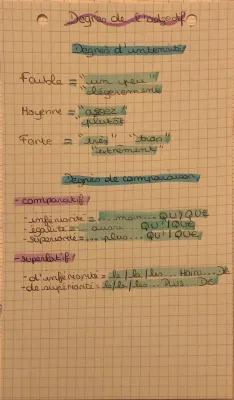 Degrés de l'adjectif
Degrés d'intensité
Faible = "un peu"
"légèrement"
Moyenne = "assez"
plutôt
Forte = "très" "trop"
"extrêment"
Degrés de comparaison
- comparatif
- infériorité = ... moin... QU'/QUE
- égalité = aussi... QU'/QUE
- supériorité = ... plus... QU'/QUE
- superlatif
- d'infériorité = le/la/les... Moin... DE
- de supériorité = le/la/les... PLUS... DE